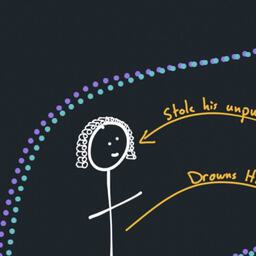 Stole his unpu
Drowns H